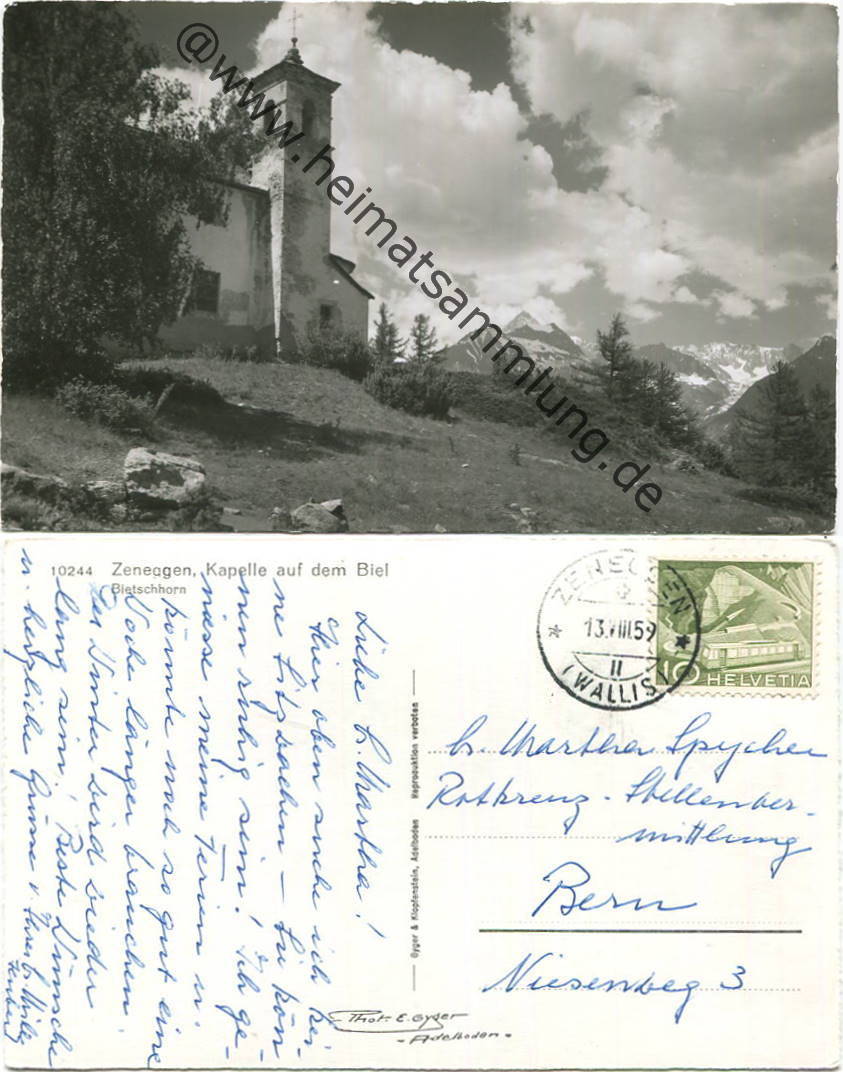 @www.heimatsammlung.de
10244 Zeneggen, Kapelle auf dem Biel
Bietschhorn
ZENEGGEN
13.VIII.59
II
(WALLIS)
10 HELVETIA
Liebe S. Martha!
Hier oben suche ich kei-
ne Sitzsachen – Sie kön-
nen ruhig sein! Ich ge-
niesse meine Ferien u.
könnte noch so gut eine
Woche länger brauchen.
Der Winter wird wieder
lang sein! Beste Wünsche
u. herzliche Grüsse v. Ihrer S.
Gyger & Klopfenstein, Adelboden Reproduktion verboten
S. Martha Spycher
Rotkreuz-Stellenver-
mittlung
Bern
Niesenweg 3
Phot. E. Gyger
-Adelboden-